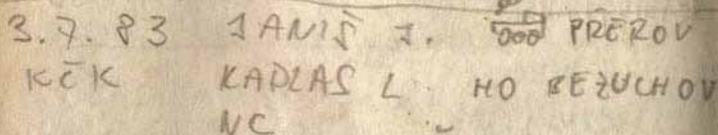 3.7.83 JANIŠ J. PŘEROV
KČK KADLAS L. HO BEZUCHOV
NC